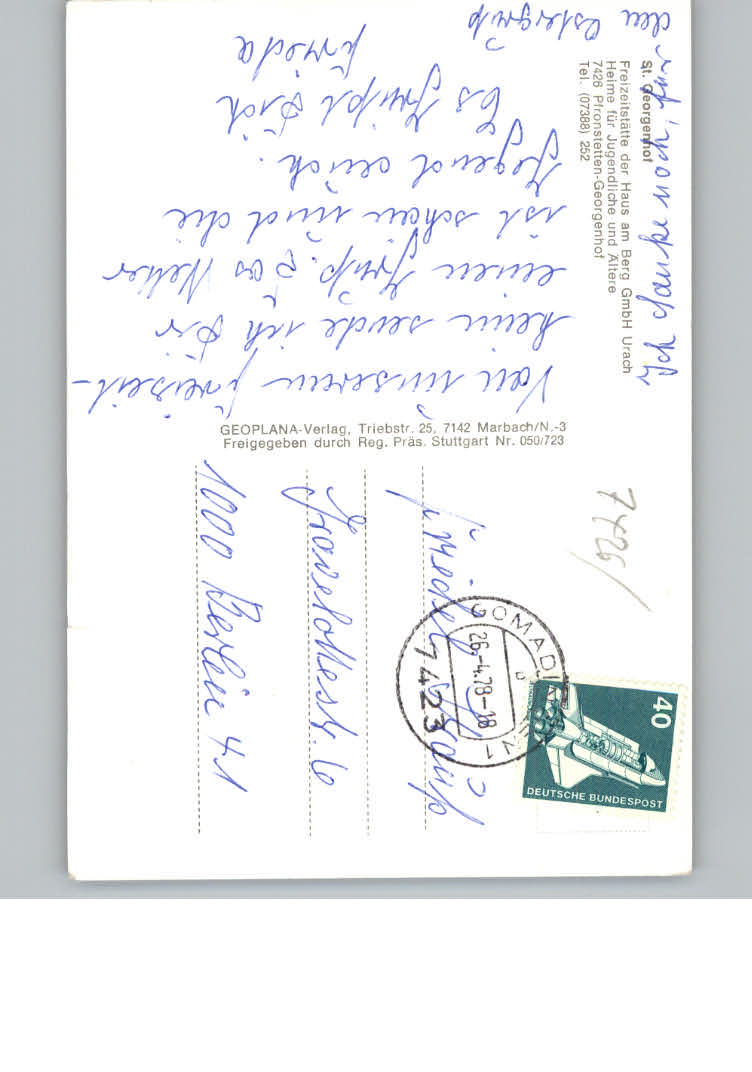 St. Georgenhof
Freizeitstätte der Haus am Berg GmbH Urach
Heime für Jugendliche und Ältere
7426 Pfronstetten-Georgenhof
Tel. (07388) 252
Von unserem Freizeit-
heim sende ich Dir
einen Gruß. Das Wetter
ist schön und die
Gegend auch.
Es grüßt Dich
Frieda
Ich danke noch für
den Ostergruß
GEOPLANA-Verlag, Triebstr. 25, 7142 Marbach/N.-3
Freigegeben durch Reg. Präs. Stuttgart Nr. 050/723
7426/
40
DEUTSCHE BUNDESPOST
26.-4.78-18
7423
1000 Berlin 41